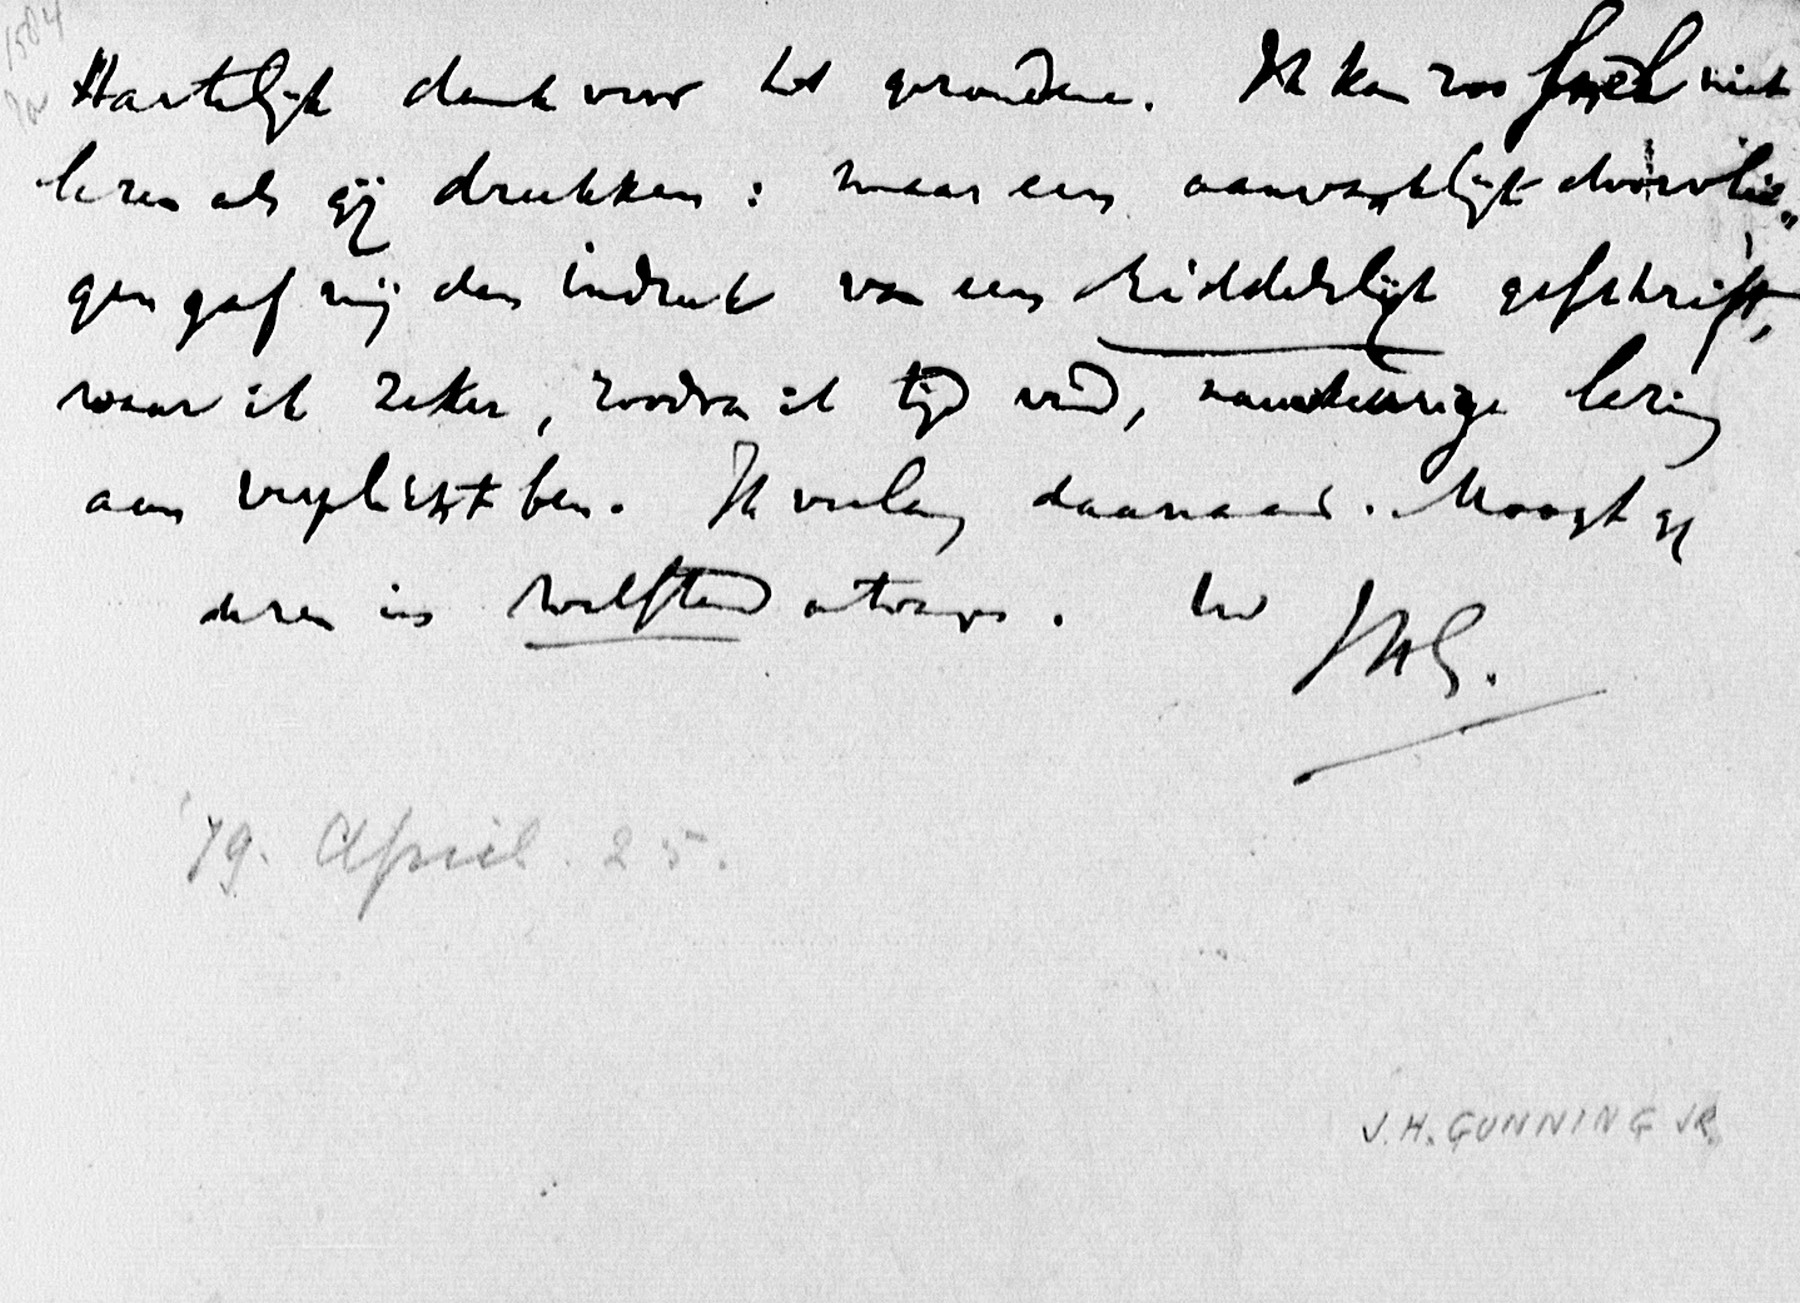 1504
Hartelijk dank voor het gezondene. Ik kan zoo snel niet
lezen als gij drukken: maar een aanvankelijk doorvlie„
gen gaf mij den indruk van een ridderlijk geschrift,
waar ik zeker, zoodra ik tijd vind, nauwkeurige lezing
aan verplicht ben. Ik verlang daarnaar. Moogt gij
dezen in welstand ontvangen. Uw JHG.
'79. April. 25.
J.H. GUNNING JR.